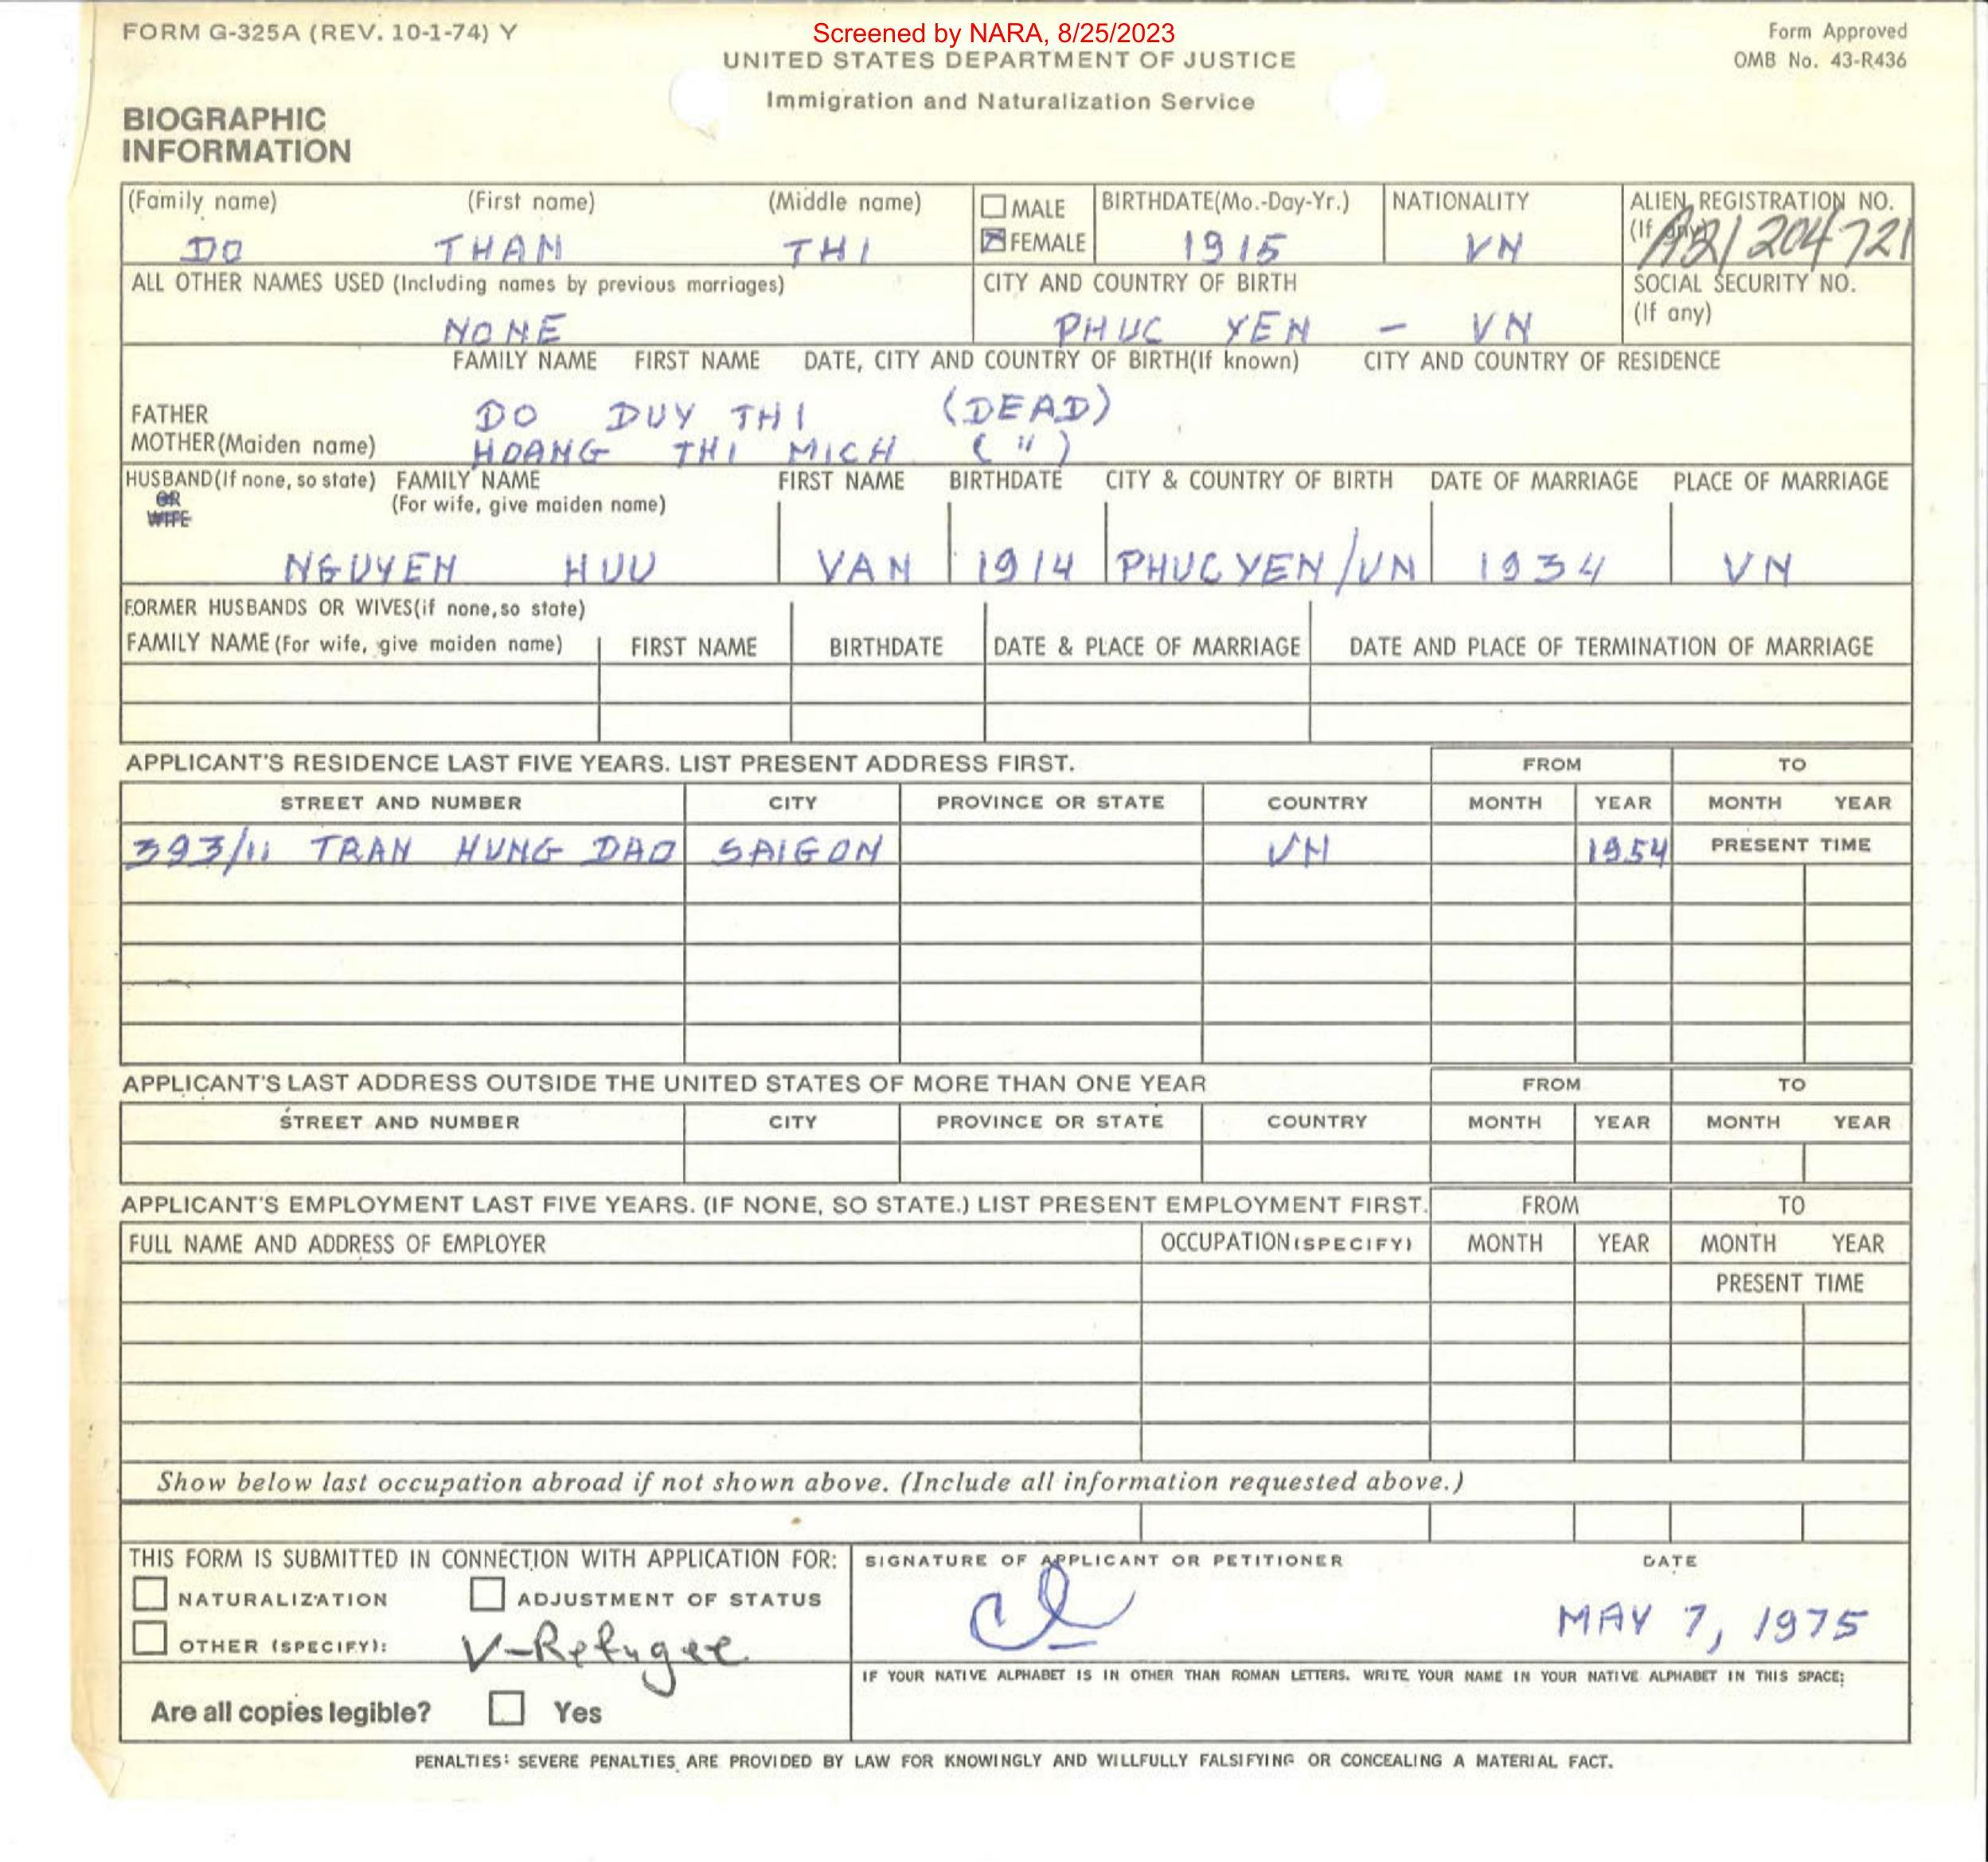 FORM G-325A (REV. 10-1-74) Y
Screened by NARA, 8/25/2023
Form Approved
OMB No. 43-R436
UNITED STATES DEPARTMENT OF JUSTICE
Immigration and Naturalization Service
BIOGRAPHIC
INFORMATION
(Family name) (First name) (Middle name)
DO THAN THI
☐ MALE
☒ FEMALE
BIRTHDATE(Mo.-Day-Yr.)
1915
NATIONALITY
VN
ALIEN REGISTRATION NO.
(If any)
A21204721
ALL OTHER NAMES USED (Including names by previous marriages)
NONE
CITY AND COUNTRY OF BIRTH
PHUC YEN - VN
SOCIAL SECURITY NO.
(If any)
FAMILY NAME FIRST NAME DATE, CITY AND COUNTRY OF BIRTH(If known) CITY AND COUNTRY OF RESIDENCE
FATHER DO DUY THI (DEAD)
MOTHER(Maiden name) HOANG THI MICH ( " )
HUSBAND(If none, so state) FAMILY NAME FIRST NAME BIRTHDATE CITY & COUNTRY OF BIRTH DATE OF MARRIAGE PLACE OF MARRIAGE
OR (For wife, give maiden name)
WIFE
NGUYEN HUU VAN 1914 PHUCYEN/VN 1934 VN
FORMER HUSBANDS OR WIVES(if none,so state)
FAMILY NAME (For wife, give maiden name) FIRST NAME BIRTHDATE DATE & PLACE OF MARRIAGE DATE AND PLACE OF TERMINATION OF MARRIAGE
APPLICANT'S RESIDENCE LAST FIVE YEARS. LIST PRESENT ADDRESS FIRST. FROM TO
STREET AND NUMBER CITY PROVINCE OR STATE COUNTRY MONTH YEAR MONTH YEAR
393/11 TRAN HUNG DAO SAIGON VN 1954 PRESENT TIME
APPLICANT'S LAST ADDRESS OUTSIDE THE UNITED STATES OF MORE THAN ONE YEAR FROM TO
STREET AND NUMBER CITY PROVINCE OR STATE COUNTRY MONTH YEAR MONTH YEAR
APPLICANT'S EMPLOYMENT LAST FIVE YEARS. (IF NONE, SO STATE.) LIST PRESENT EMPLOYMENT FIRST. FROM TO
FULL NAME AND ADDRESS OF EMPLOYER OCCUPATION (SPECIFY) MONTH YEAR MONTH YEAR
PRESENT TIME
Show below last occupation abroad if not shown above. (Include all information requested above.)
THIS FORM IS SUBMITTED IN CONNECTION WITH APPLICATION FOR:
☐ NATURALIZATION ☐ ADJUSTMENT OF STATUS
☐ OTHER (SPECIFY): V-Refugee
Are all copies legible? ☐ Yes
SIGNATURE OF APPLICANT OR PETITIONER DATE
MAY 7, 1975
IF YOUR NATIVE ALPHABET IS IN OTHER THAN ROMAN LETTERS, WRITE YOUR NAME IN YOUR NATIVE ALPHABET IN THIS SPACE:
PENALTIES: SEVERE PENALTIES ARE PROVIDED BY LAW FOR KNOWINGLY AND WILLFULLY FALSIFYING OR CONCEALING A MATERIAL FACT.